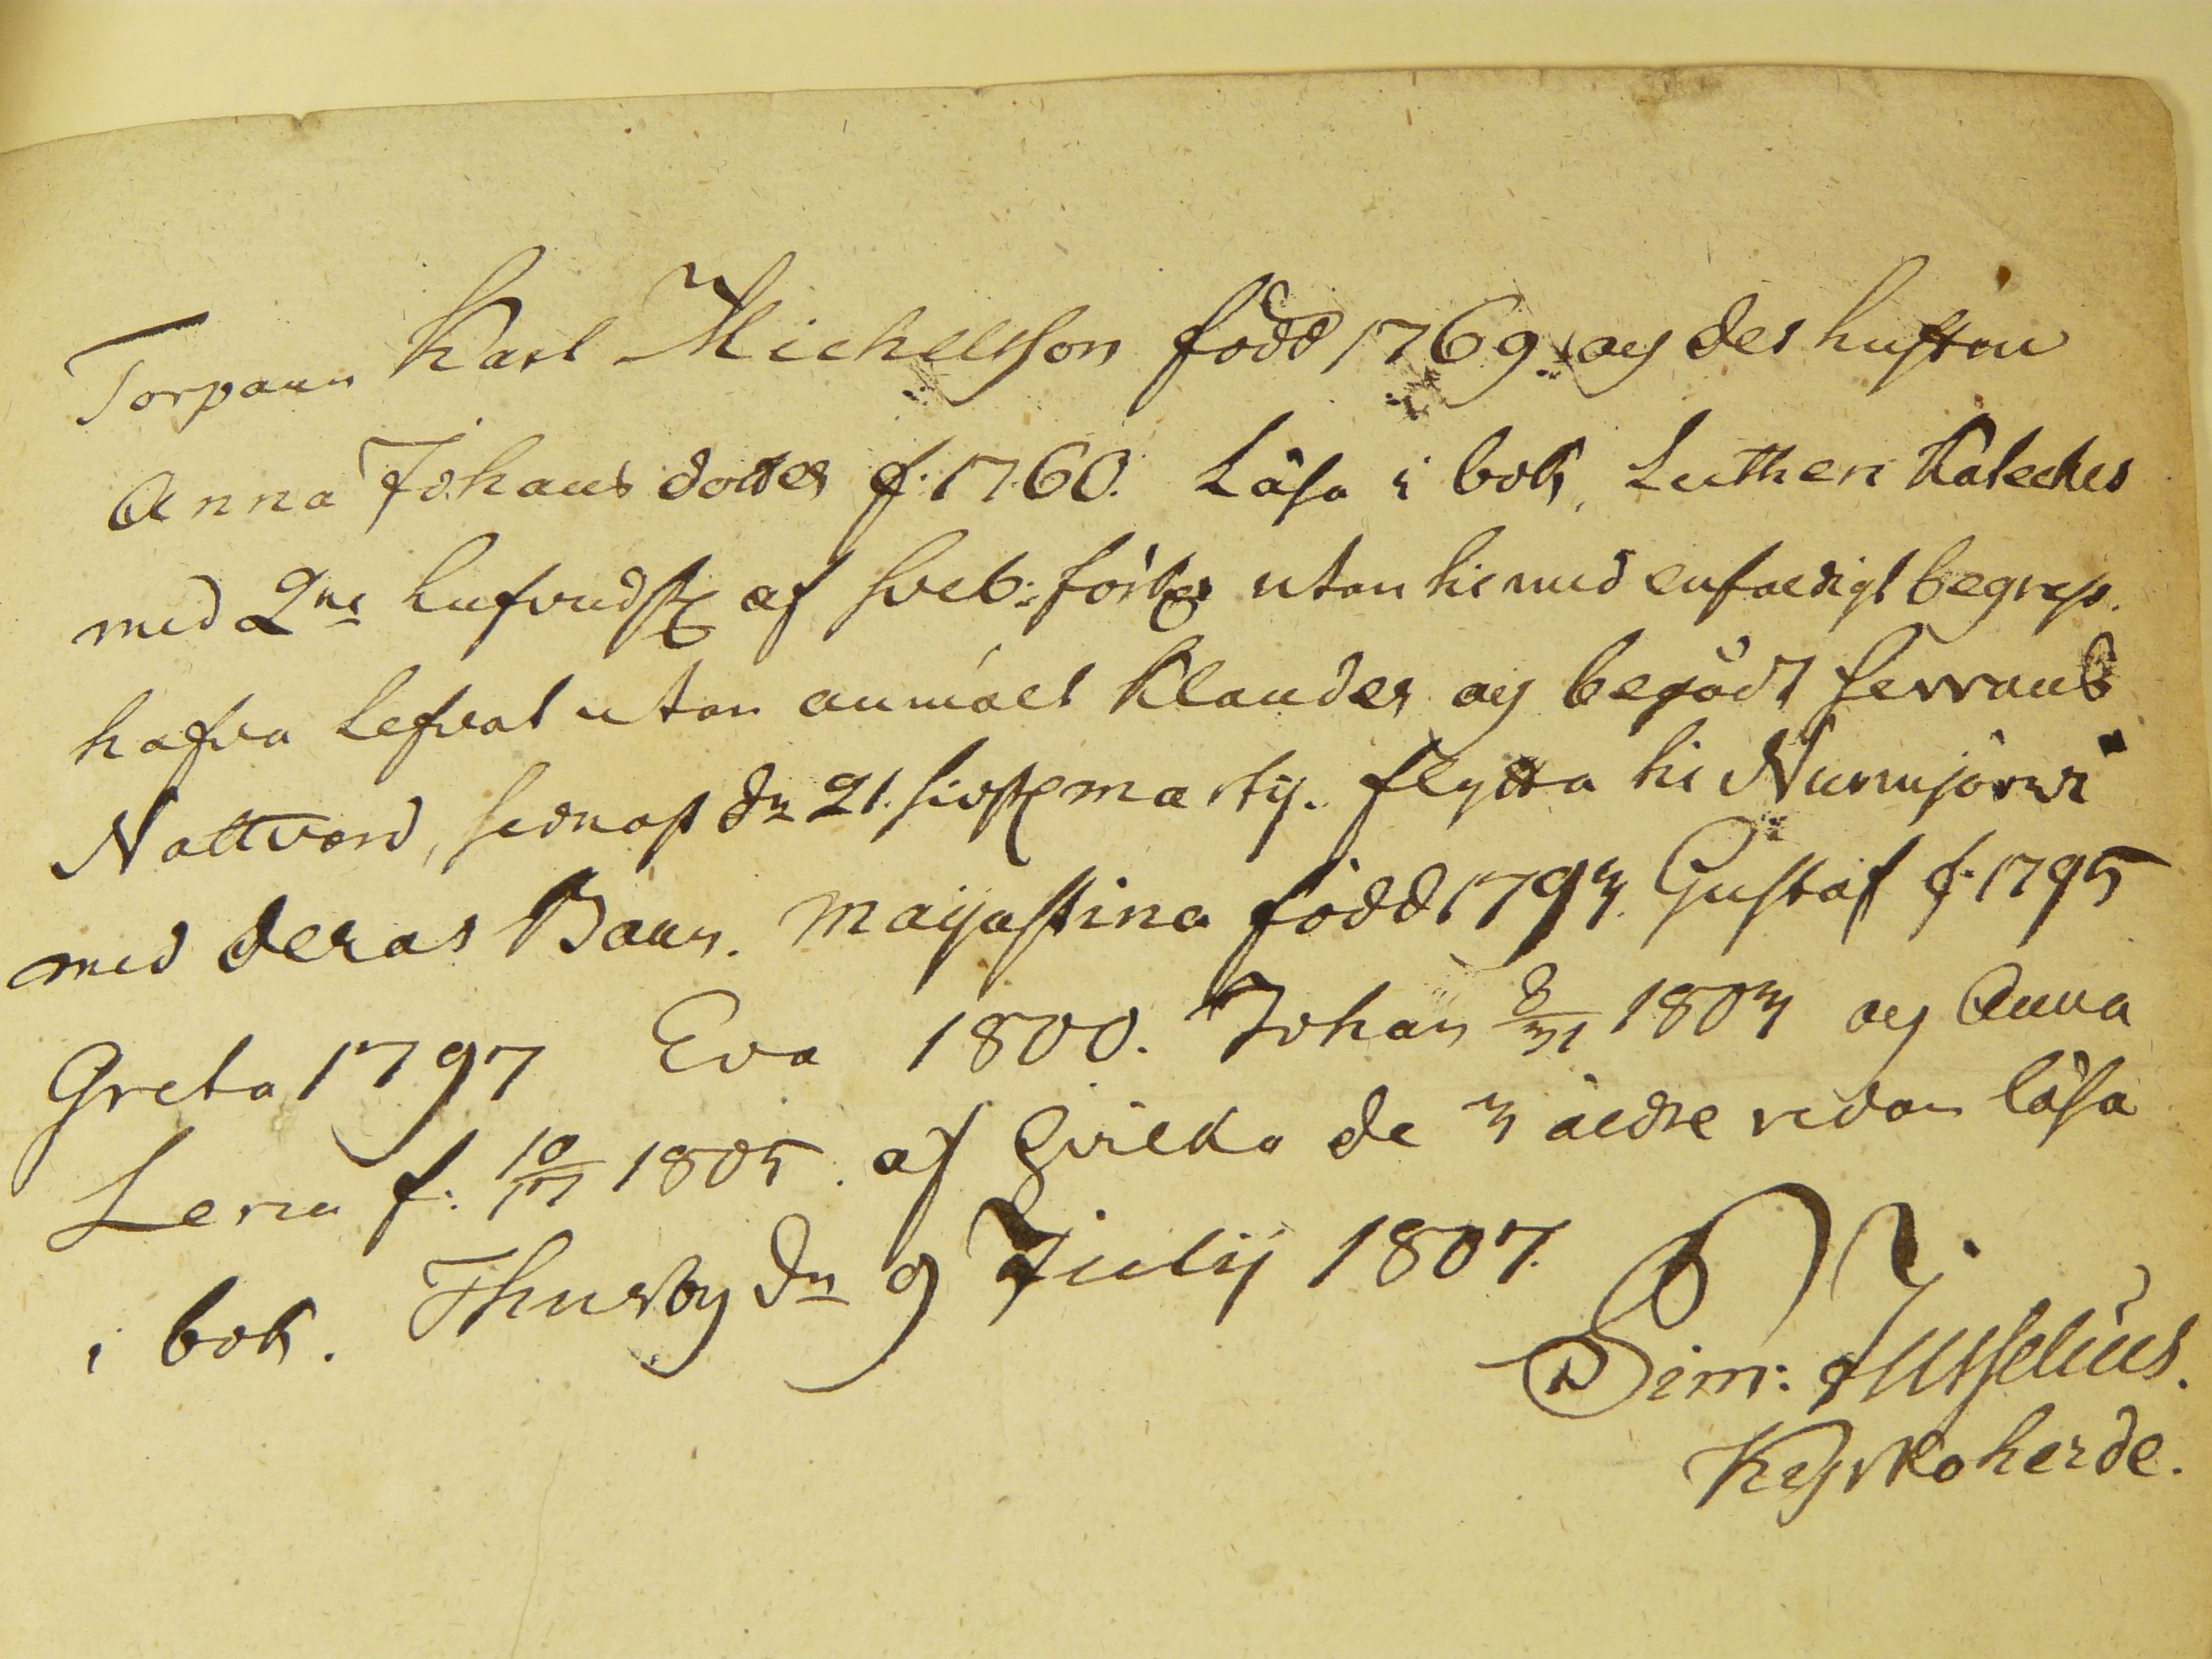 Torparn Karl Michelsson född 1769. og des hustru
Anna Johans dotter f. 1760. Läsa i bok, Lutheri Kateches
med 2ne hufvudst af Sveb: förkl utan til med enfaldigt begrep.
hafva Lefvat utan anmält klander og begådt herrans
Nattvard, sednast dn 21. sidstl martij. flytta til Nurmijärvi
med deras Barn. Maijastina född 1793. Gustaf f. 1795
Greta 1797 Eva 1800. Johan 8/31 1803 og Anna
Lena f. 10/17 1805. af hvilka de 3 äldre redan läsa
i bok. Thusby dn 9 Julij 1807.
Sim:
Kyrkoherde.